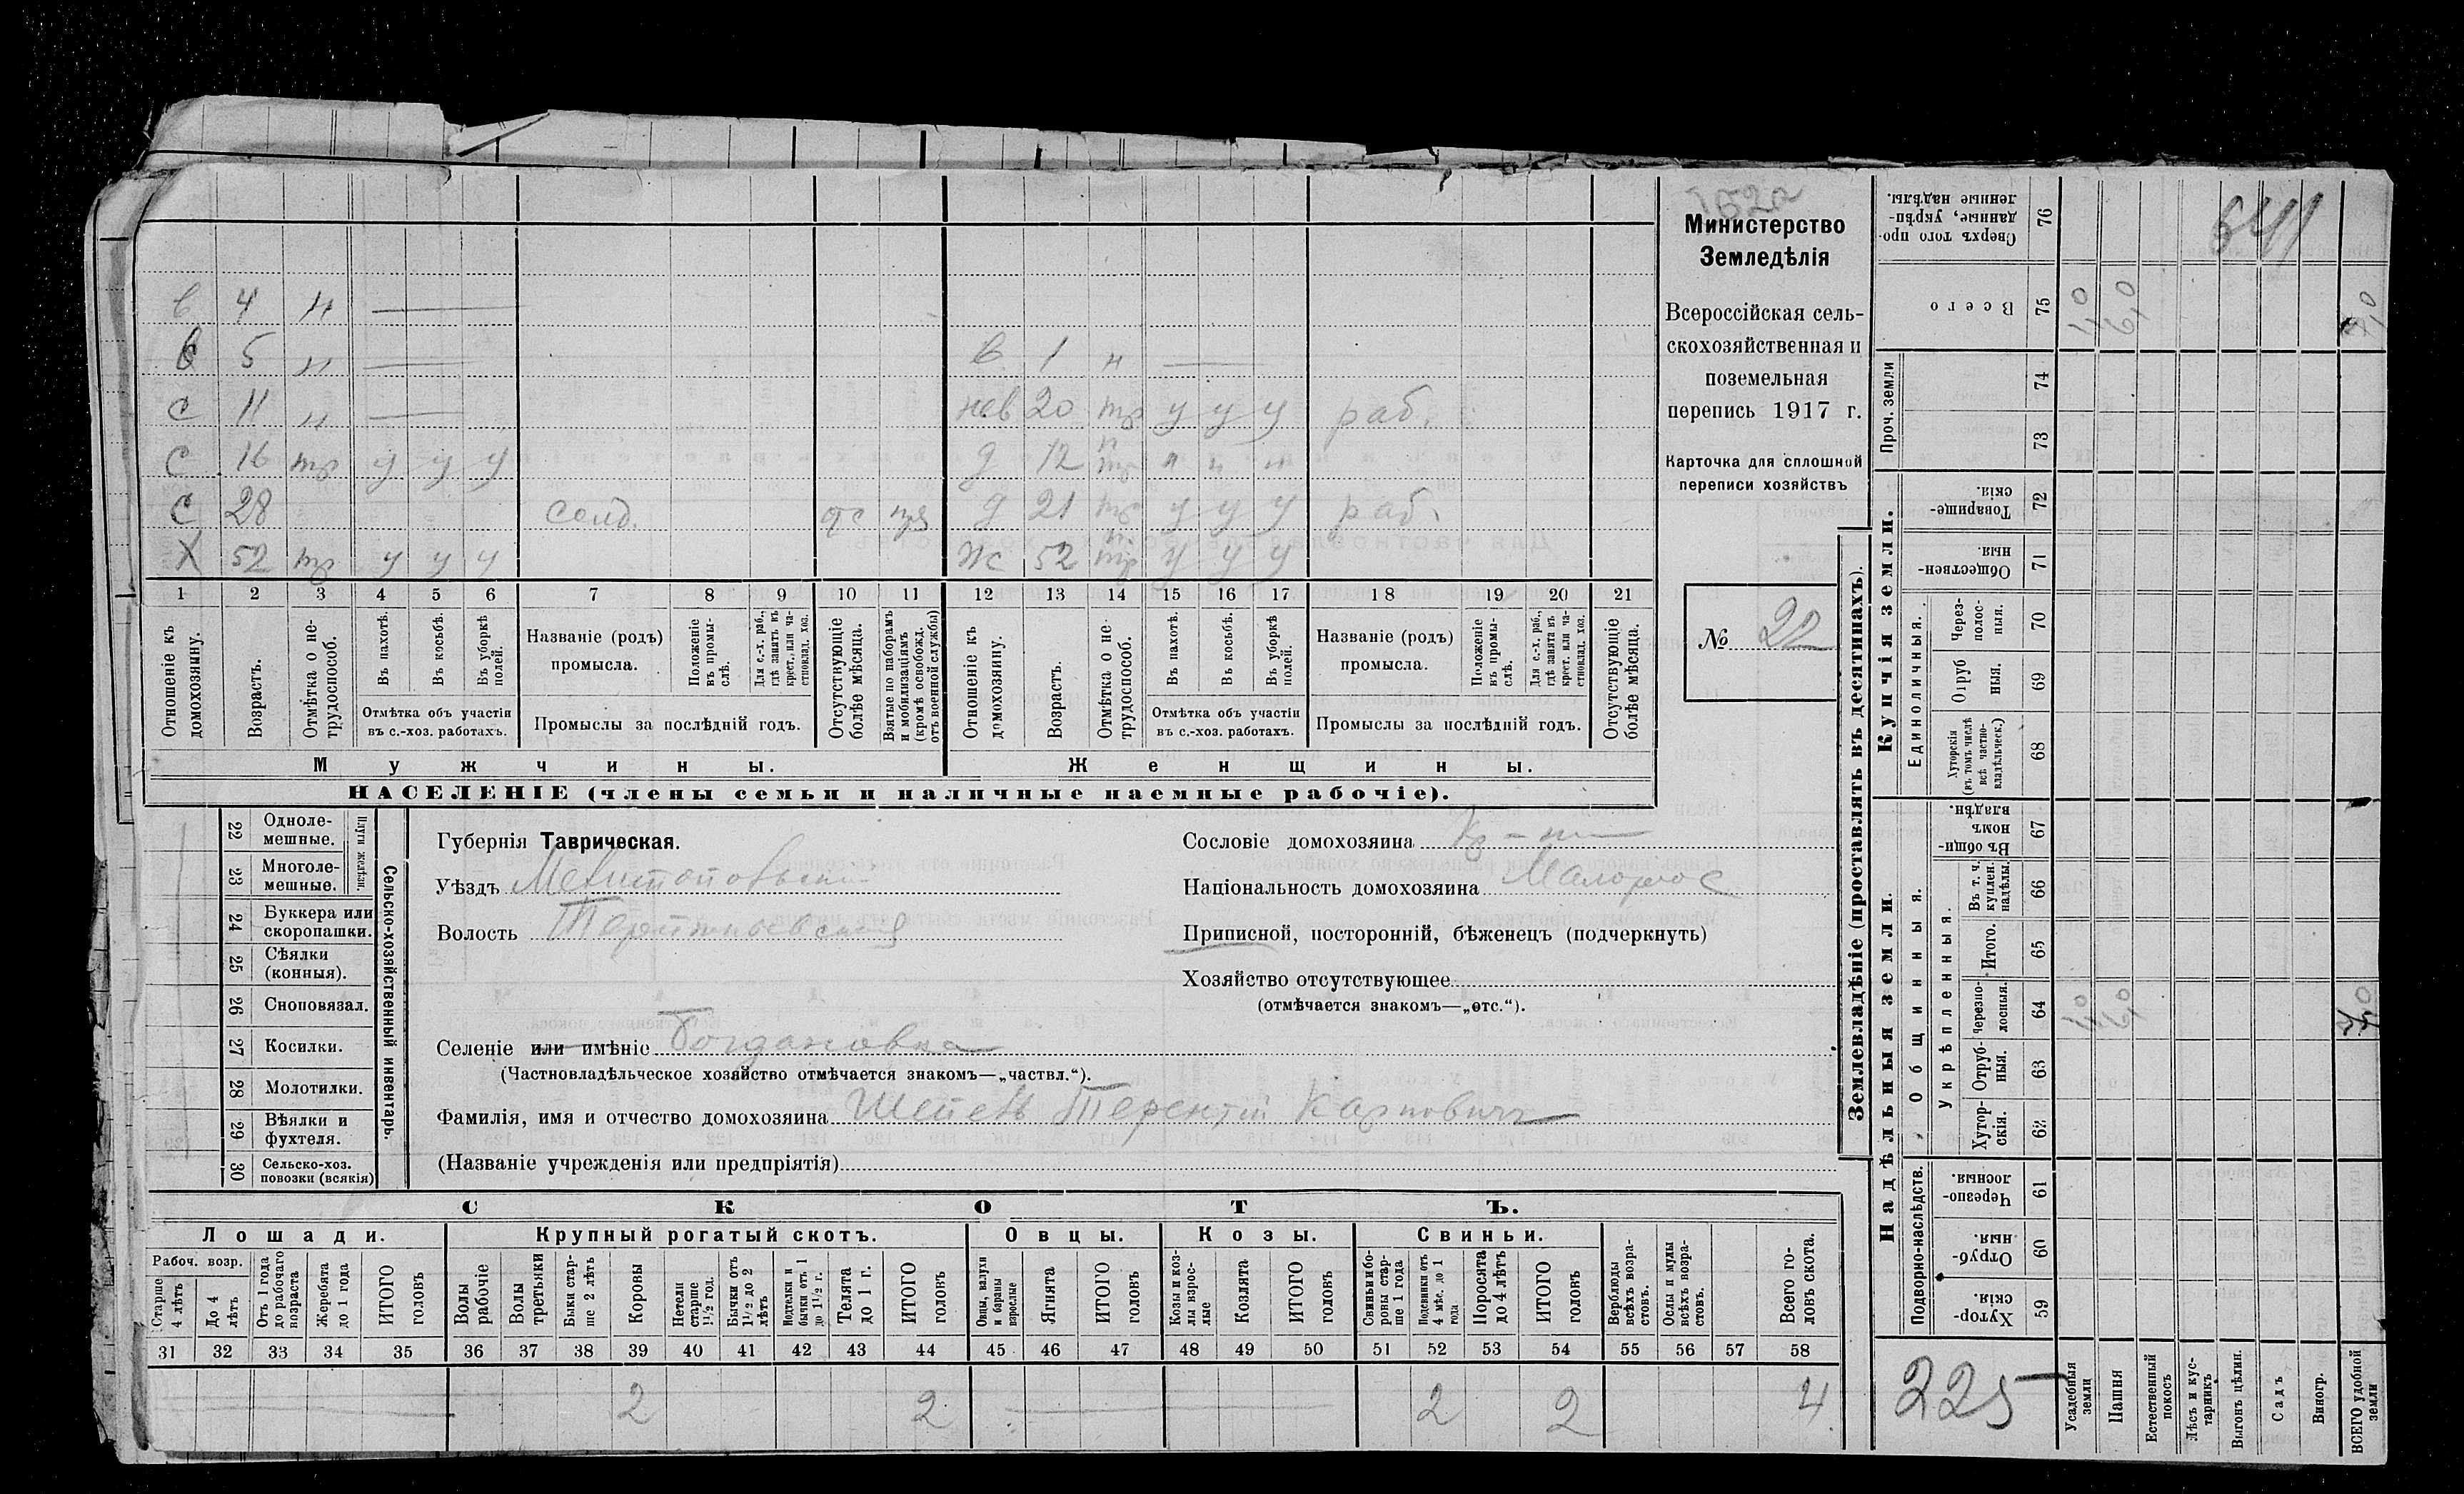 Министерство
Земледѣлія
Всероссійская сель-
скохозяйственная и
поземельная
перепись 1917 г.
Карточка для сплошной
переписи хозяйствъ
№ 22
в 4 н
в 5 н
в 1 н
с 11 н
нев 20 тр у у у раб.
с 16 тр у у у
д 12
с 28 солд. отс
д 21 тр у у у раб.
Х 52 тр у у у
ж 52 тр у у у
1 2 3 4 5 6 7 8 9 10 11 12 13 14 15 16 17 18 19 20 21
Отношеніе къ домохозяину.
Возрастъ.
Отмѣтка о не-трудоспособ.
Въ пахотѣ.
Въ косьбѣ.
Въ уборкѣ полей.
Отмѣтка объ участіи
въ с.-хоз. работахъ.
Названіе (родъ)
промысла.
Положеніе въ промы-слѣ.
Для с.-х. раб., гдѣ занятъ въ крест. или ча-стновлад. хоз.
Промыслы за послѣдній годъ.
Отсутствующіе болѣе мѣсяца.
Взятые по наборамъ и мобилизаціямъ (кромѣ освобожд. отъ военной службы)
Отношеніе къ домохозяину.
Возрастъ.
Отмѣтка о не-трудоспособ.
Въ пахотѣ.
Въ косьбѣ.
Въ уборкѣ полей.
Отмѣтка объ участіи
въ с.-хоз. работахъ.
Названіе (родъ)
промысла.
Положеніе въ промы-слѣ.
Для с.-х. раб., гдѣ занята въ крест. или ча-стновлад. хоз.
Промыслы за послѣдній годъ.
Отсутствующіе болѣе мѣсяца.
Мужчины.
Женщины.
НАСЕЛЕНІЕ (члены семьи и наличные наемные рабочіе).
Сельско-хозяйственный инвентарь.
Плуги желѣзн.
22 Одноле-мешные.
23 Многоле-мешные.
24 Буккера или скоропашки.
25 Сѣялки (конныя).
26 Сноповязал.
27 Косилки.
28 Молотилки.
29 Вѣялки и фухтеля.
30 Сельско-хоз. повозки (всякія)
Губернія Таврическая.
Уѣздъ Мелитопольскій
Волость
Селеніе или имѣніе Богдановка
(Частновладѣльческое хозяйство отмѣчается знакомъ—„частвл.“).
Фамилія, имя и отчество домохозяина Шепель Терентій Карповичъ
(Названіе учрежденія или предпріятія)
Сословіе домохозяина Кр-нъ
Національность домохозяина Малоросс
Приписной, посторонній, бѣженецъ (подчеркнуть)
Хозяйство отсутствующее
(отмѣчается знакомъ—„отс.“).
СКОТЪ.
Лошади.
Крупный рогатый скотъ.
Овцы.
Козы.
Свиньи.
Рабоч. возр.
Старше 4 лѣтъ
До 4 лѣтъ
Отъ 1 года до рабочаго возраста
Жеребята до 1 года
ИТОГО головъ
Волы рабочіе
Волы третьяки
Быки стар-ше 2 лѣтъ
Коровы
Нетели старше 1½ год.
Бычки отъ 1½ до 2 лѣтъ
Подтелки и бычки отъ 1 до 1½ г.
Телята до 1 г.
ИТОГО головъ
Овцы, валухи и бараны взрослые
Ягнята
ИТОГО головъ
Козы и коз-лы взрос-лые
Козлята
ИТОГО головъ
Свиньи и бо-ровы стар-ше 1 года
Подсвинки отъ 4 мѣс. до 1 года
Поросята до 4 лѣтъ
ИТОГО головъ
Верблюды всѣхъ возра-стовъ.
Ослы и мулы всѣхъ возра-стовъ.
Всего го-ловъ скота.
31 32 33 34 35 36 37 38 39 40 41 42 43 44 45 46 47 48 49 50 51 52 53 54 55 56 57 58
2 2 2 2 4
Землевладѣніе (проставлять въ десятинахъ).
Надѣльныя земли.
Купчія земли.
Проч. земли
Подворно-наслѣдств.
Общинныя.
Укрѣпленныя.
Единоличныя.
76 Сверхъ того про-данные, укрѣп-ленные надѣлы.
75 Всего
74
73
72 Товарище-скія.
71 Обществен-ныя.
70 Через-полос-ныя.
69 Отруб ныя.
68 Хуторскія (въ томъ числѣ всѣ частно-владѣльческ.)
67 Въ общи-номъ владѣн.
66 Въ т. ч. куплен. надѣлы.
65 Итого.
64 Черезпо-лосныя.
63 Отруб-ныя.
62 Хутор-скія.
61 Черезпо-лосныя.
60 Отруб-ныя.
59 Хутор-скія.
225
Усадебныя земли
Пашня
Естественный покосъ
Лѣсъ и кус-тарникъ
Выгонъ цѣлин.
Садъ
Виногр.
ВСЕГО удобной земли